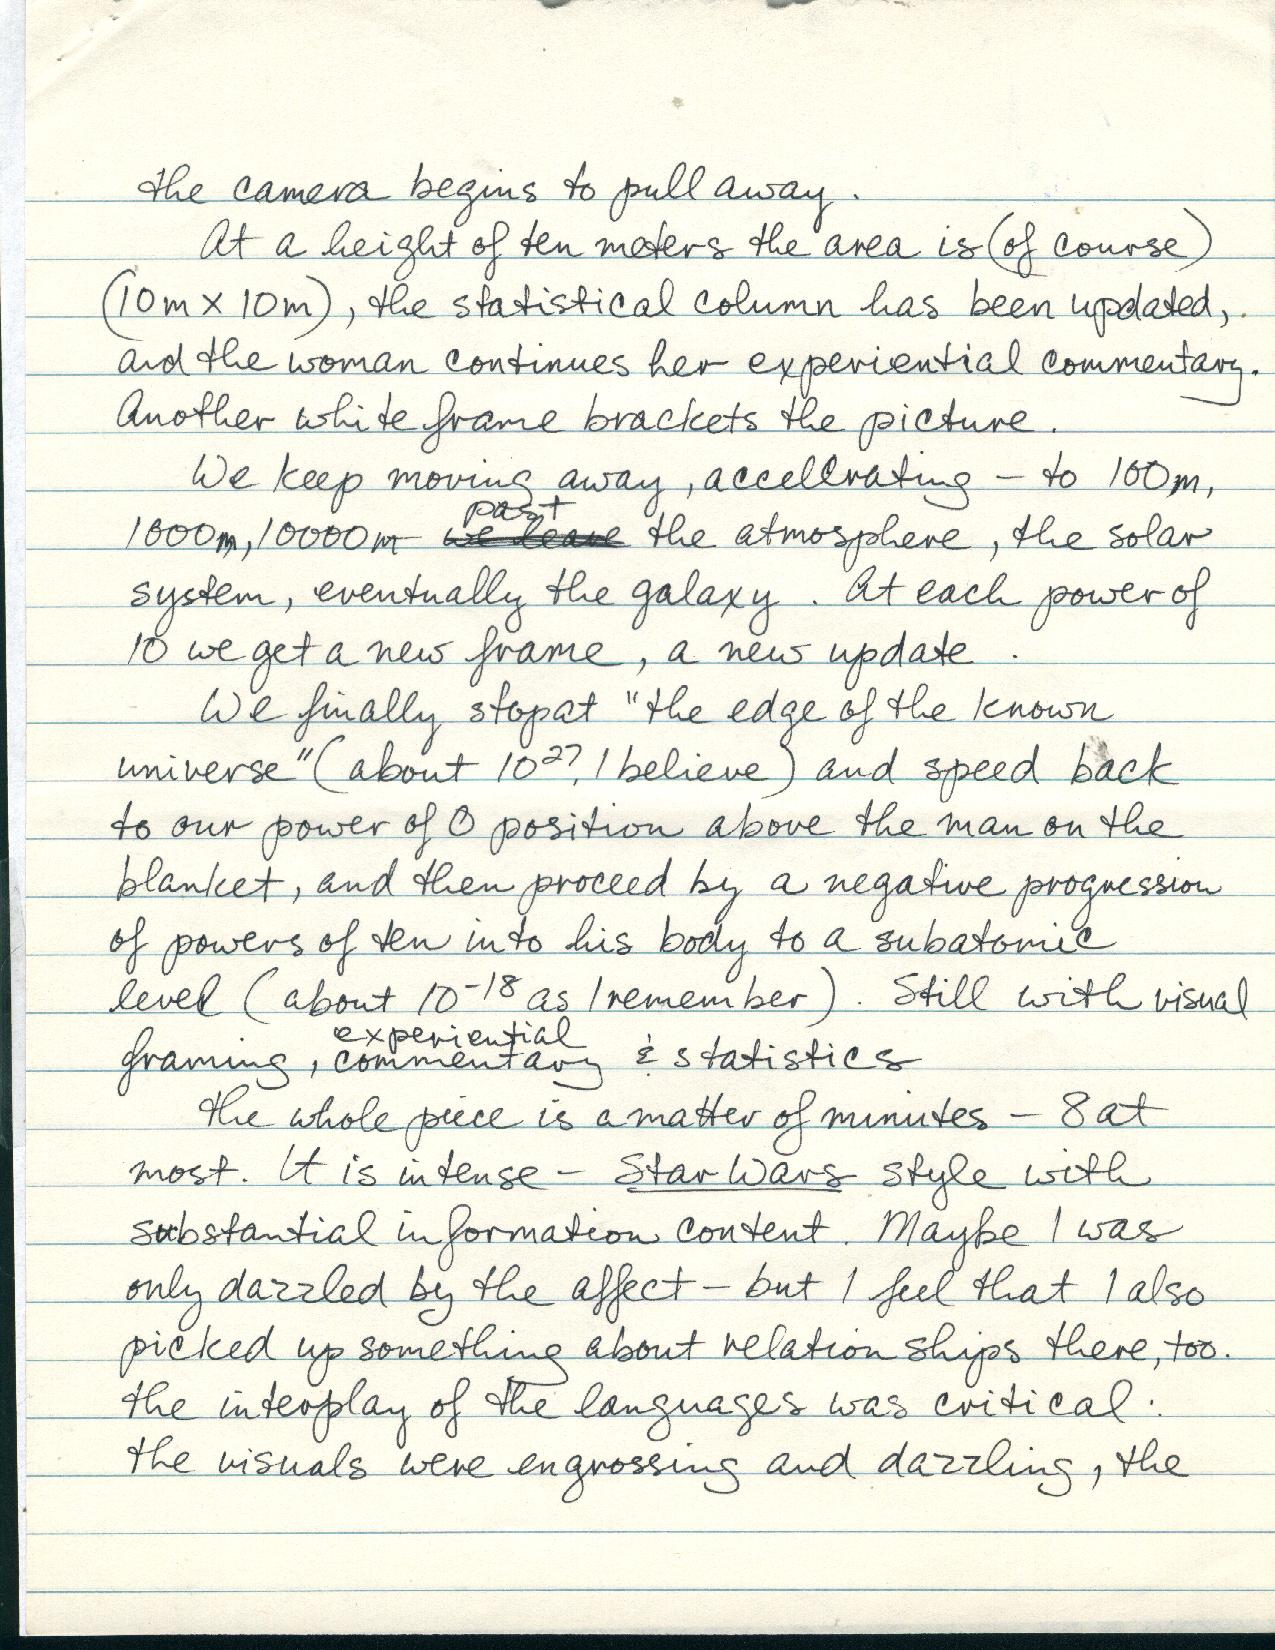 the camera begins to pull away.
At a height of ten meters the area is (of course)
(10m x 10m), the statistical column has been updated,
and the woman continues her experiential commentary.
Another white frame brackets the picture.
We keep moving away, accellrating - to 100m,
past
1000m, 10000m - we leave the atmosphere, the solar
system, eventually the galaxy. At each power of
10 we get a new frame, a new update.
We finally stop at "the edge of the known
universe" (about 10²⁷, I believe) and speed back
to our power of 0 position above the man on the
blanket, and then proceed by a negative progression
of powers of ten into his body to a subatomic
level (about 10⁻¹⁸ as I remember). Still with visual
experiential
framing, commentary & statistics
The whole piece is a matter of minutes - 8 at
most. It is intense - Star Wars style with
substantial information content. Maybe I was
only dazzled by the affect - but I feel that I also
picked up something about relationships there, too.
The interplay of the languages was critical:
the visuals were engrossing and dazzling, the